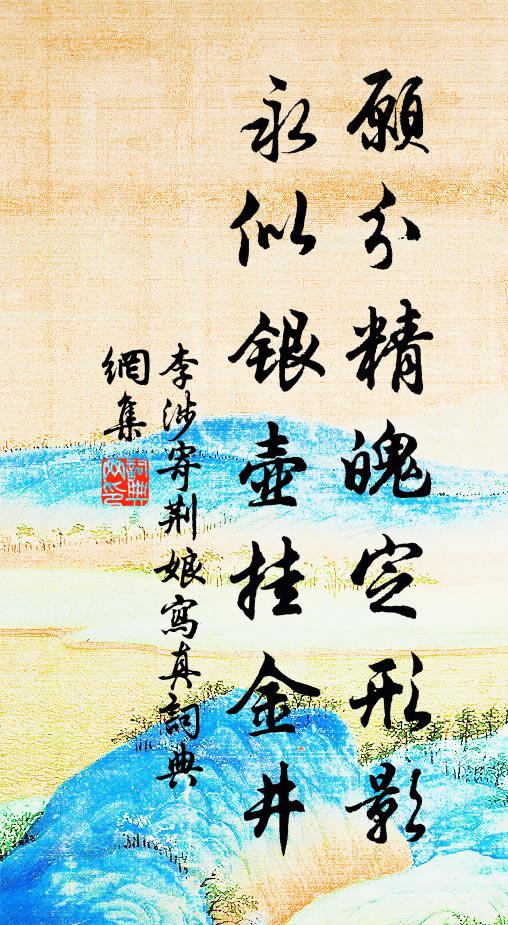 願分精魄定形影
永似銀壺挂金井
李涉寄荆娘寫真詞典
網集